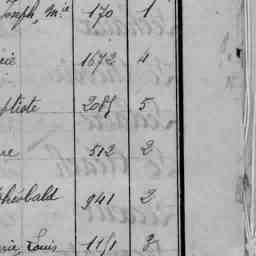 oseph, Mie 170 1
rie 1672 4
aptiste 2085 5
re 512 2
Théobald 941 2
rie, Louis 1151 2